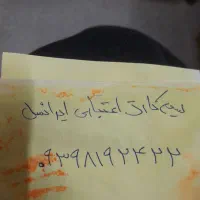 سیم کارت اعتباری ایرانسل
۰۹۳۹۸۱۹۲۴۳۲